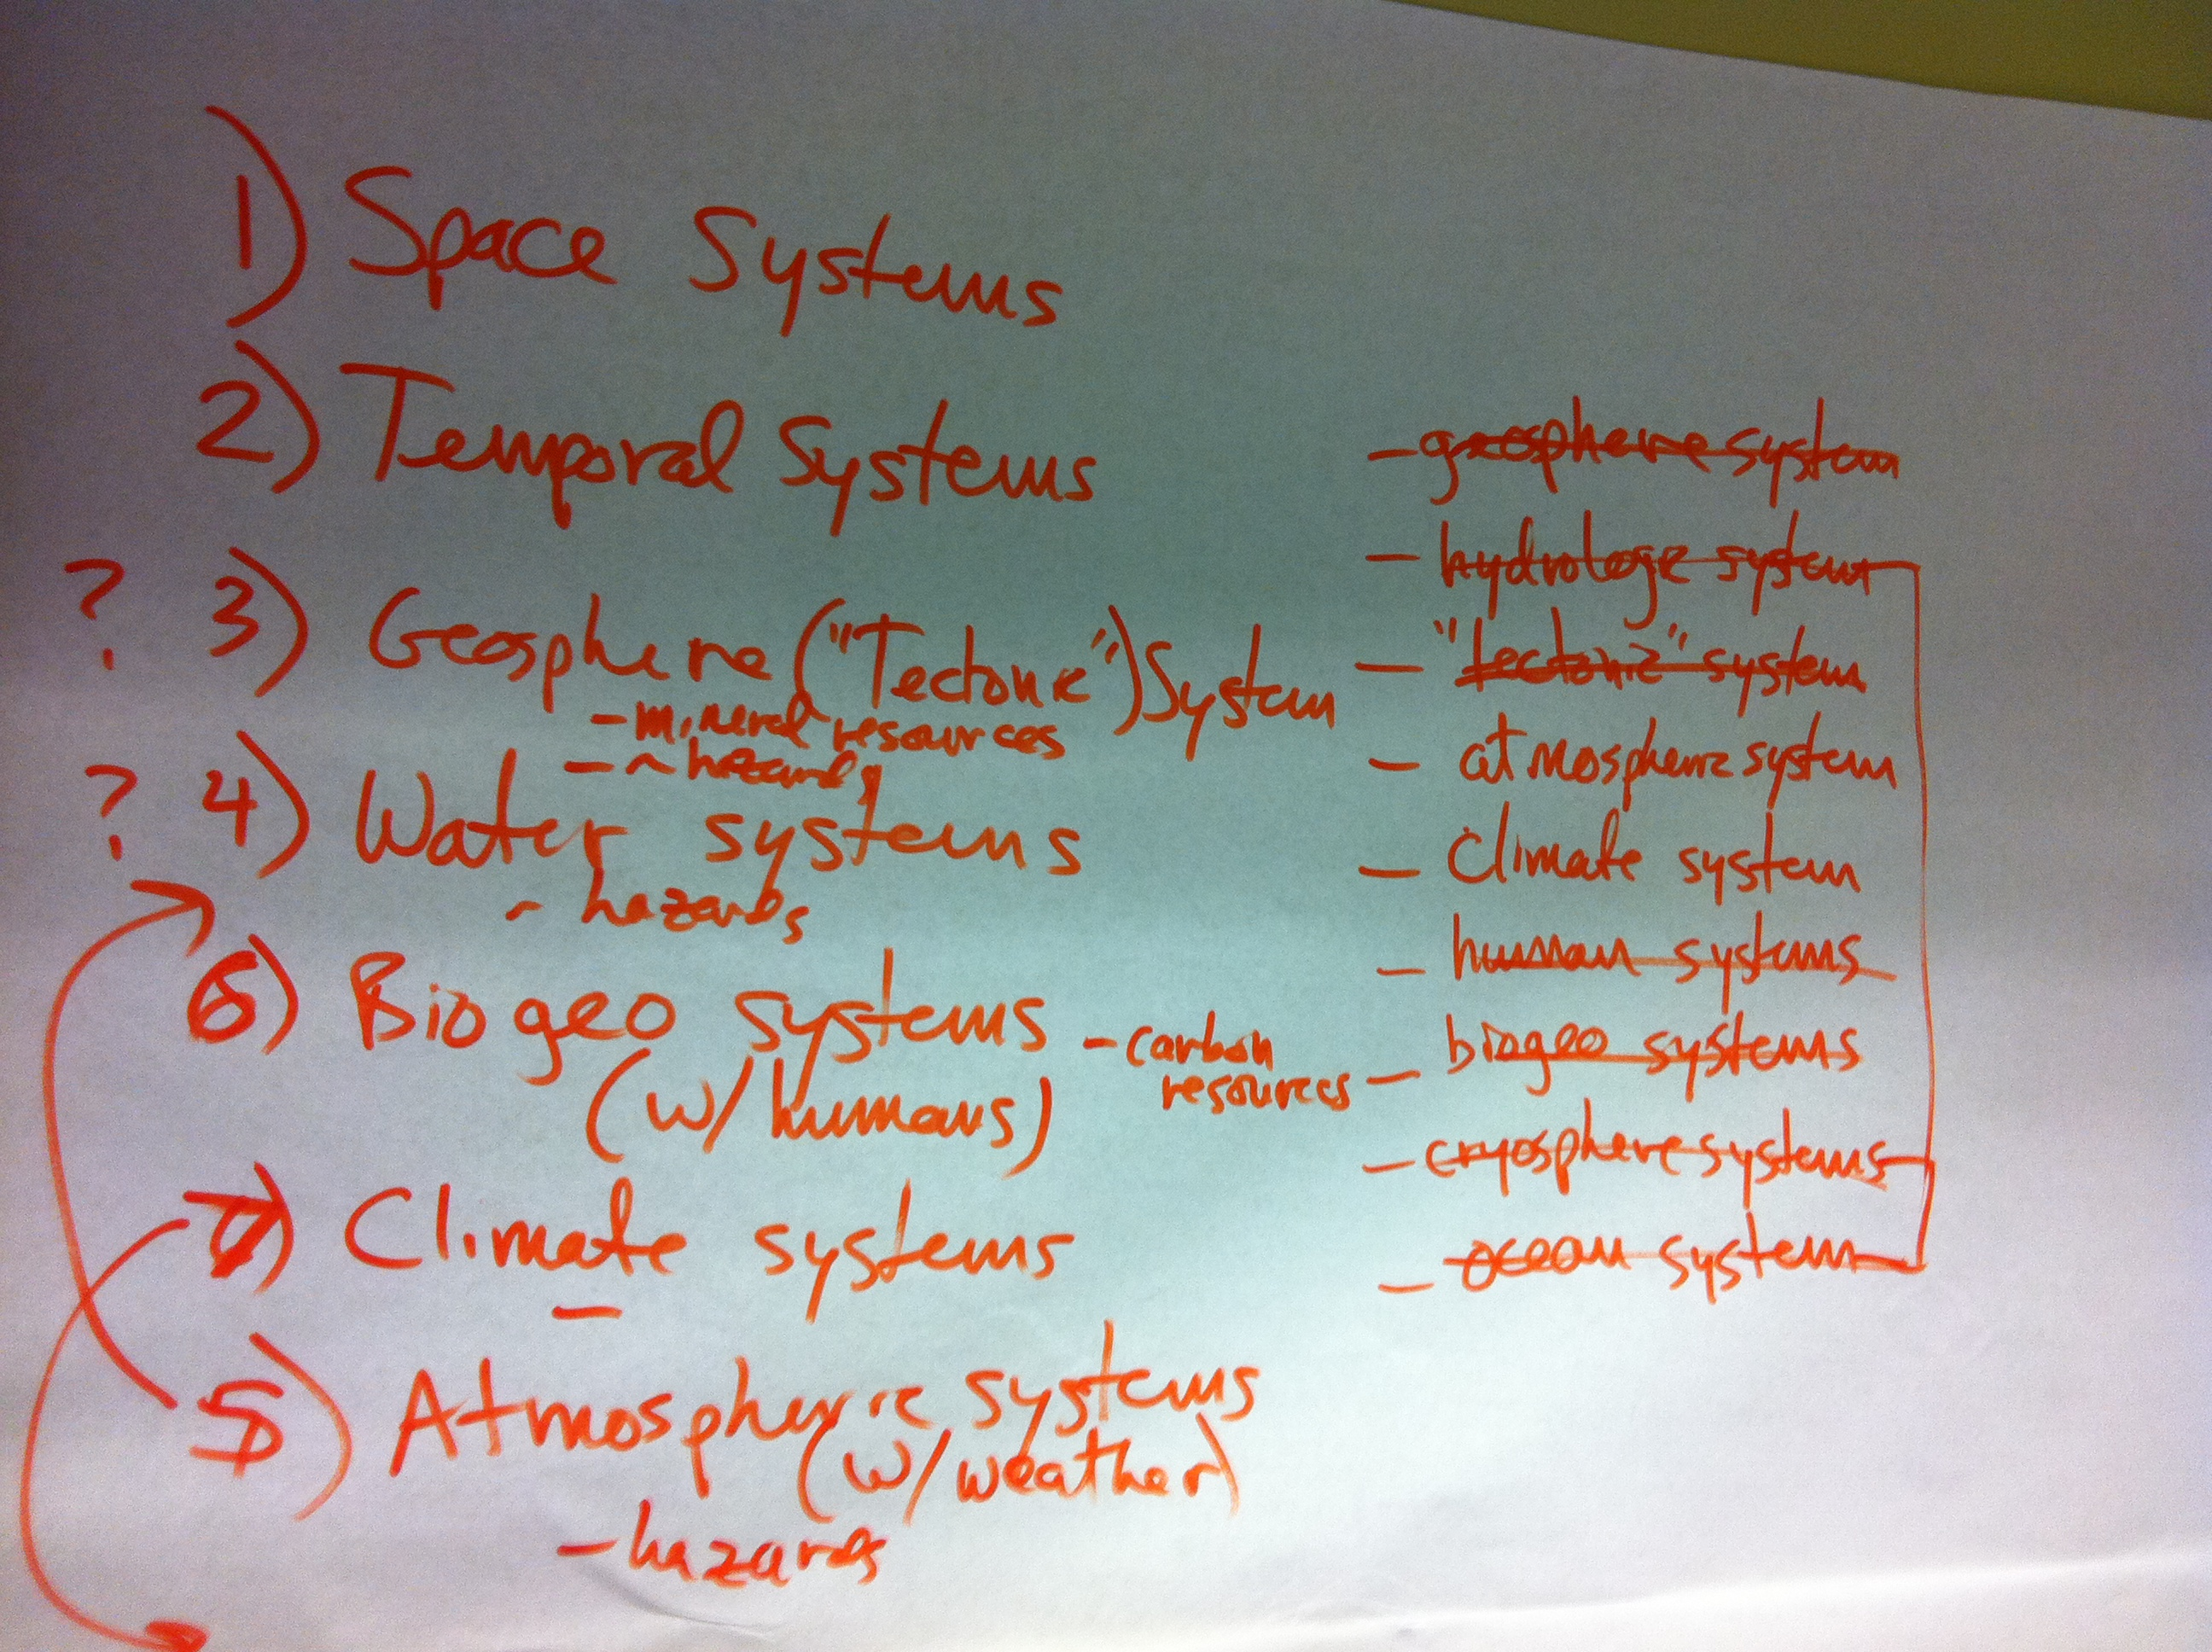 1) Space Systems
2) Temporal Systems
? 3) Geosphere ("Tectonic") System
- mineral resources
- ~ hazards
? 4) Water systems
~ hazards
6) Biogeo systems
(w/humans)
- carbon
resources
7) Climate systems
-
5) Atmospheric systems
(w/weather)
- hazards
- geosphere system
- hydrologic system
- "tectonic" system
- atmospheric system
- Climate system
- human systems
- biogeo systems
- cryosphere systems
- ocean system